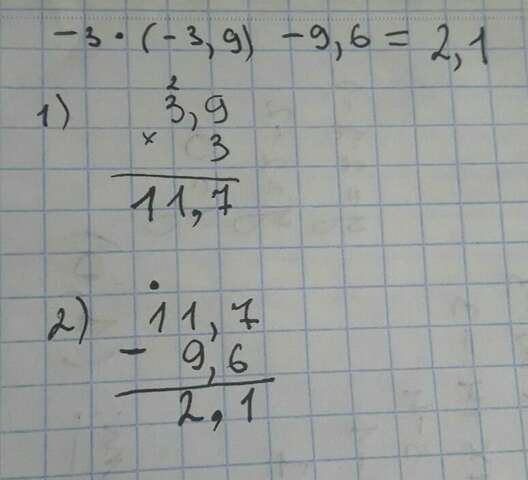 -3 · (-3,9) -9,6 = 2,1
1)
2
3,9
× 3
11,7
2)
•
11,7
- 9,6
2,1